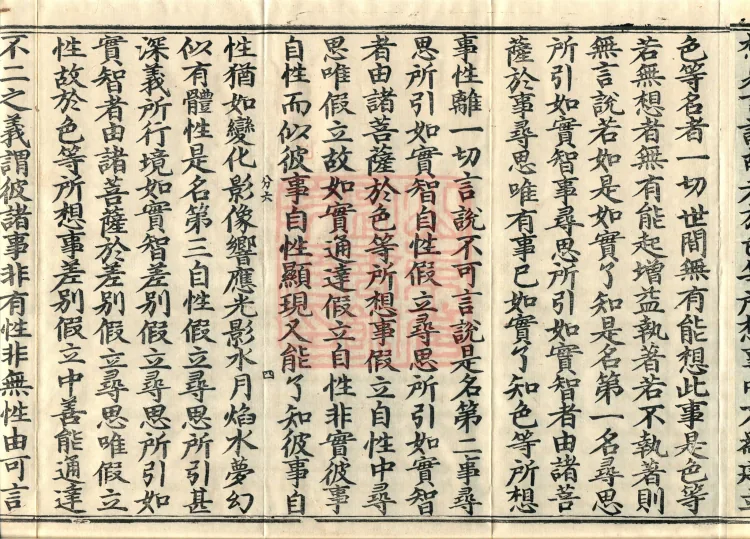 色等名者一切世間無有能想此事是色等
若無想者無有能起增益執著若不執著則
無言說若如是如實了知是名第一名尋思
所引如實智事尋思所引如實智者由諸菩
薩於事尋思唯有事已如實了知色等所想
事性離一切言說不可言說是名第二事尋
思所引如實智自性假立尋思所引如實智
者由諸菩薩於色等所想事假立自性中尋
思唯假立故如實通達假立自性非實彼事
自性而似彼事自性顯現又能了知彼事自
分六
四
性猶如變化影像響應光影水月焰水夢幻
似有體性是名第三自性假立尋思所引甚
深義所行境如實智差別假立尋思所引如
實智者由諸菩薩於差別假立尋思唯假立
性故於色等所想事差別假立中善能通達
不二之義謂彼諸事非有性非無性由可言